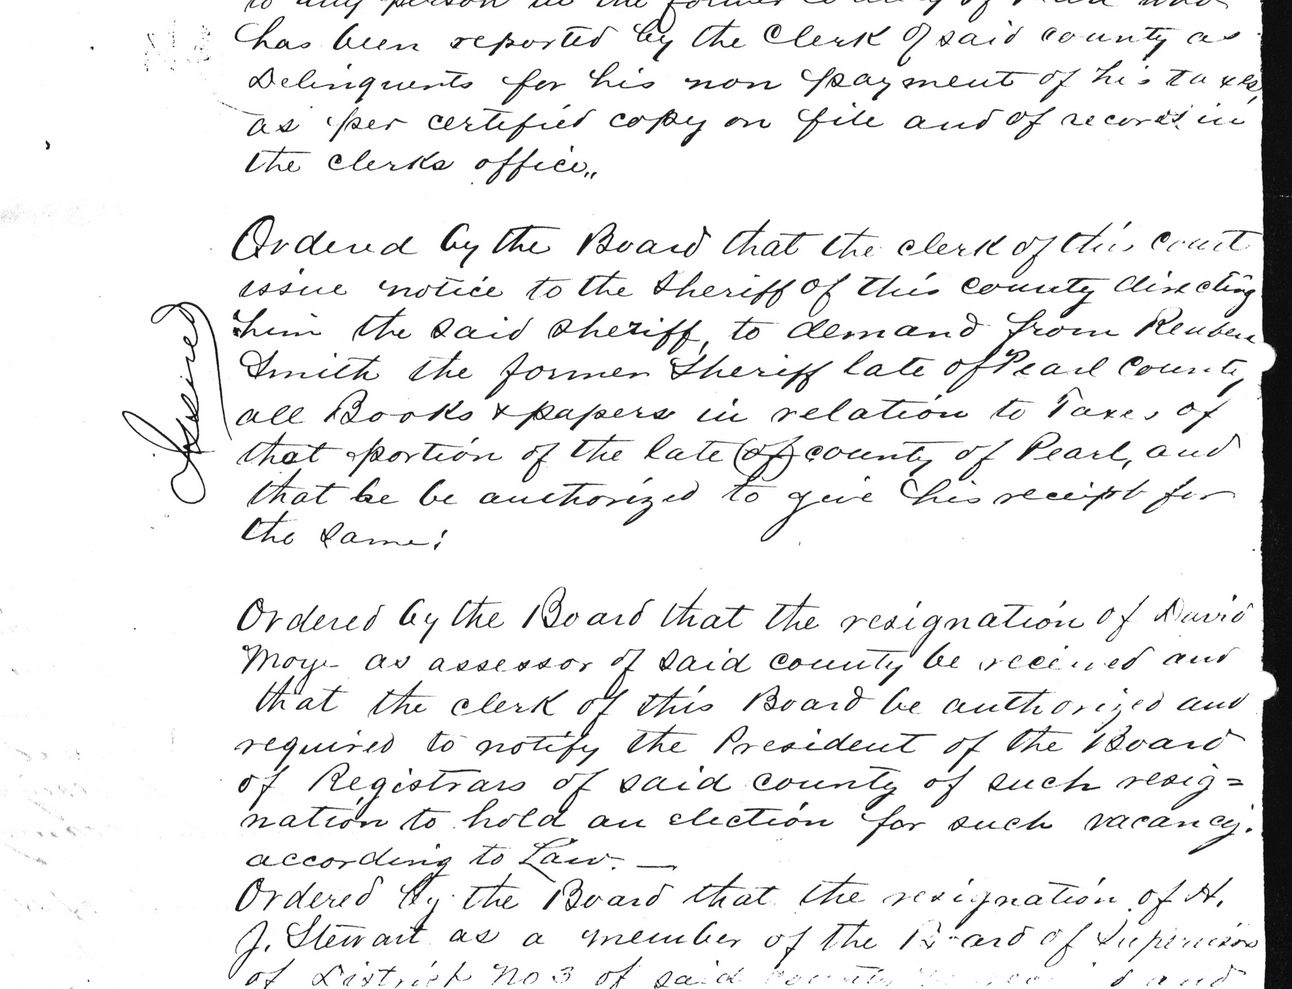 to any person in the former county of Pearl who
has been reported by the Clerk of said county as
Delinquents for his non payment of his taxes,
as per certified copy on file and of records in
the clerks office,,
Ordered by the Board that the clerk of this court
issue notice to the Sheriff of this county directing
him the said sheriff, to demand from Reuben
Smith the former Sheriff late of Pearl county
all Books & papers in relation to Taxes of
that portion of the late (of) county of Pearl, and
that he be authorized to give his receipt for
the same;
Issued
Ordered by the Board that the resignation of David
Moye as assessor of said county be received and
that the clerk of this Board be authorized and
required to notify the President of the Board
of Registrars of said county of such resig=
nation to hold an election for such vacancy.
according to Law. —
Ordered by the Board that the resignation of H.
J. Stewart as a member of the Board of Supervisors
of District No 3 of said county and